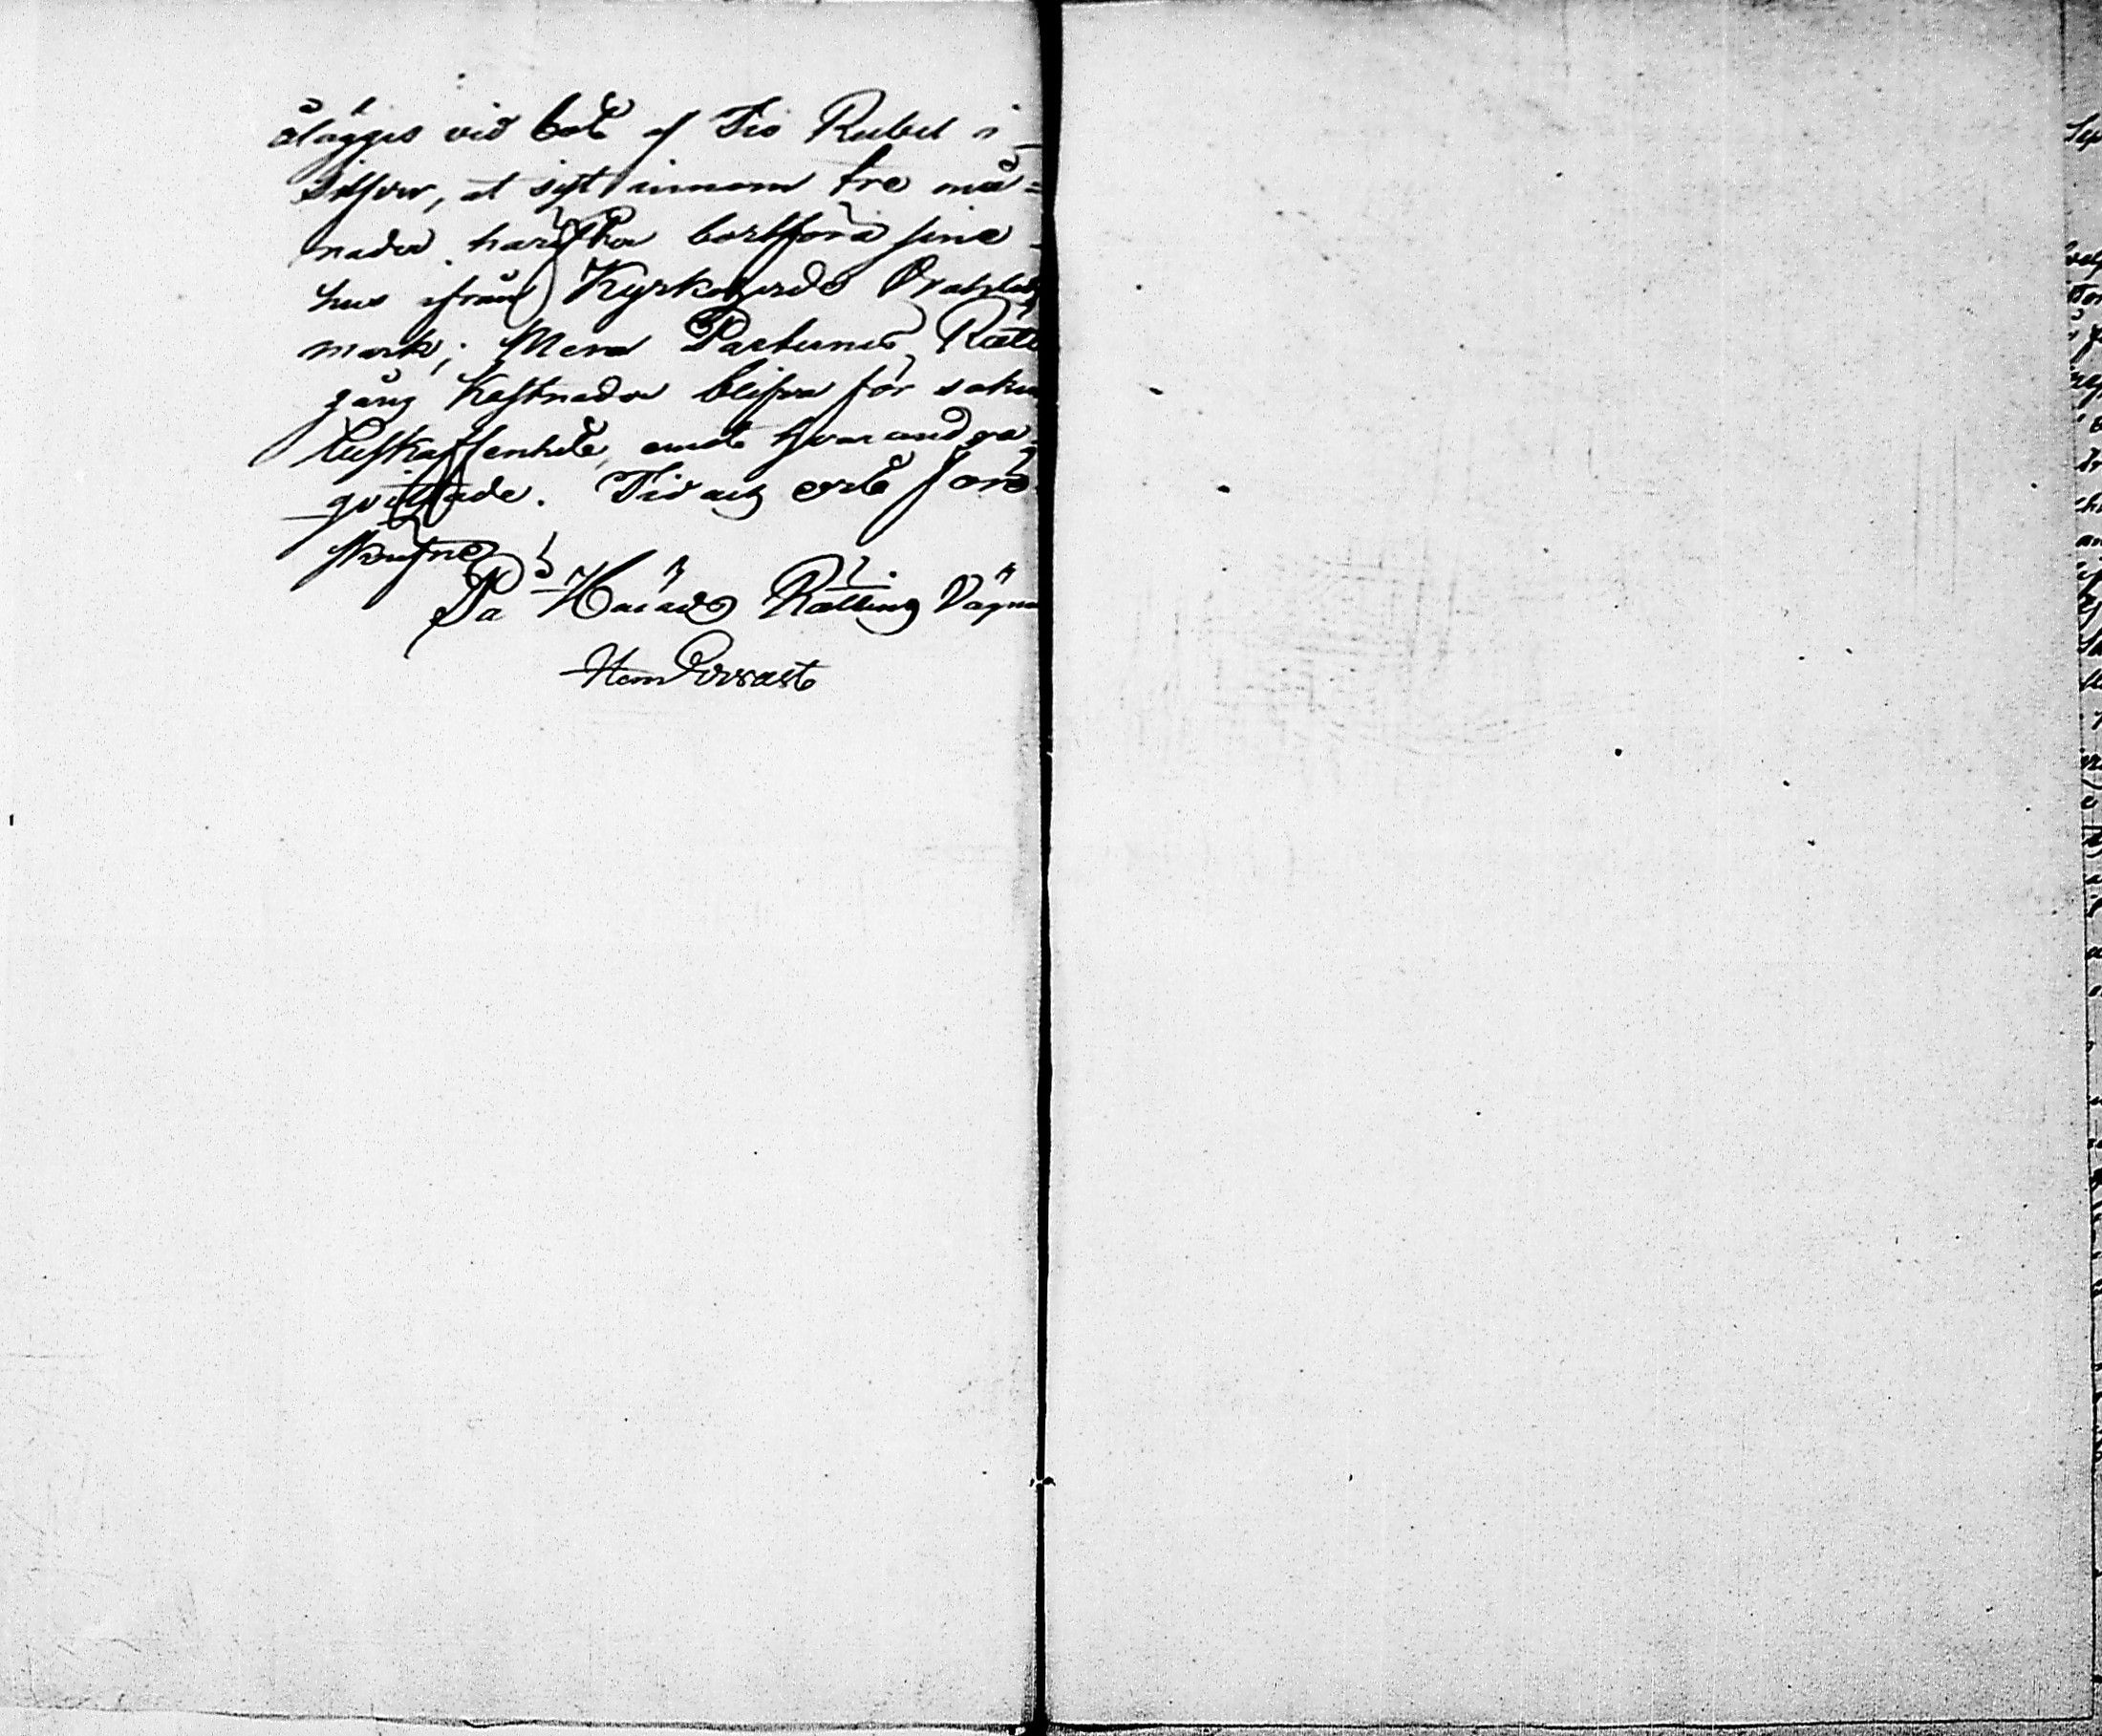 ålägges vid bot af Tio Rubel i
Silfver, at sist innom tre må=
nader härefter bortföra sine
hus ifrån Kyrkogårds
mark; Men Parternes Rätte
gång Kostnader blifva för sakens
beskaffenhet emot hvarandra
qvittade. Tid och orte som
skrefne
På Härads Rättens Vägnar